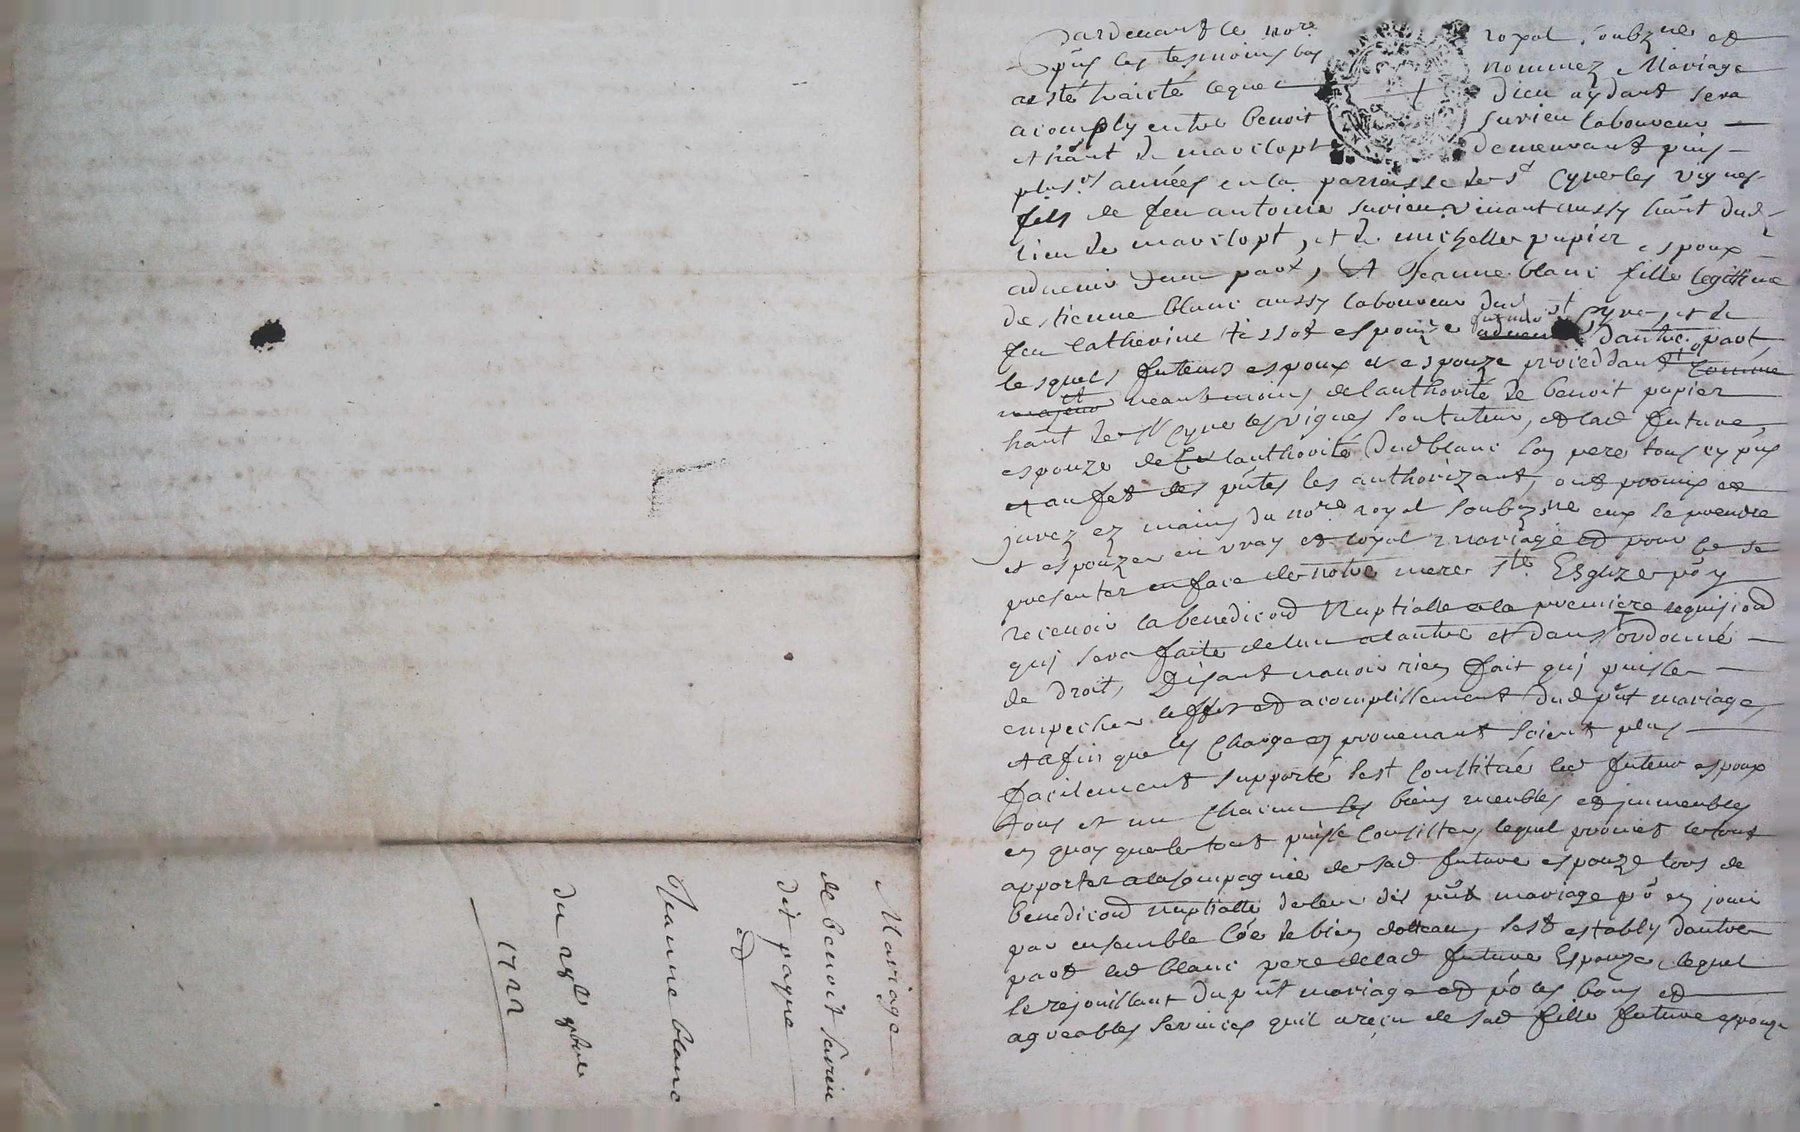 Pardevant le nore royal soubzne et
pns les tesmoins bas nommez Mariage
a esté traicté lequel dieu aydant sera
acomply entre benoit surieu laboureur
et hant de marclopt demeurant puis
plusrs années en la parroisse de st Cyre les vignes
fils de feu antoine surieu vivant aussy hant dud
lieu de marclopt, et de michelle papier espoux
advenir dune part, et Jeanne blanc fille legitime
destienne blanc aussy laboureur dud st Cyre, et de
feu Catherine tissot espouze future dautre part,
lesquels futeurs espoux et espouze proceddant comme
majeur neanmoins de lauthorité de benoit papier
hant de st Cyre les vignes son tuteur, et lad future
espouze de lauthorité dud blanc son pere tous cy pns
et au fet des pntes les authorizant, ont promis et
jurez ez mains du nore royal soubzne eux se prendre
et espouzer en vray et loyal mariage et pour ce se
presenter en face de notre mere ste Esglize pr y
recevoir la benediction Nuptialle a la premiere requision
qui sera faite de lun a lautre et dans lordonné
de droit, Disant navoir rien fait qui puisse
empecher leffet et acomplissement dud pnt mariage,
et afin que les charges en provenant soient plus
facilement supporté sest Constitué led futeur espoux
tous et un chacun ses biens meubles et immeubles
en quoy que le tout puisse Consister, lequel promet le tout
apporter a la Compagnie de sad future espouze lors de
benediction nuptialle de leur dit pnt mariage pr en jouir
par ensemble Coe de bien dotteau, sest estably dautre
part led blanc pere de lad future Espouze lequel
se rejouissant du pnt mariage et pr les bons et
agreables services quil a reçu de sad fille future espouze
Mariage
de benoit surieu
dit pagne
et
Jeanne blanc
du 28e xbre
1722